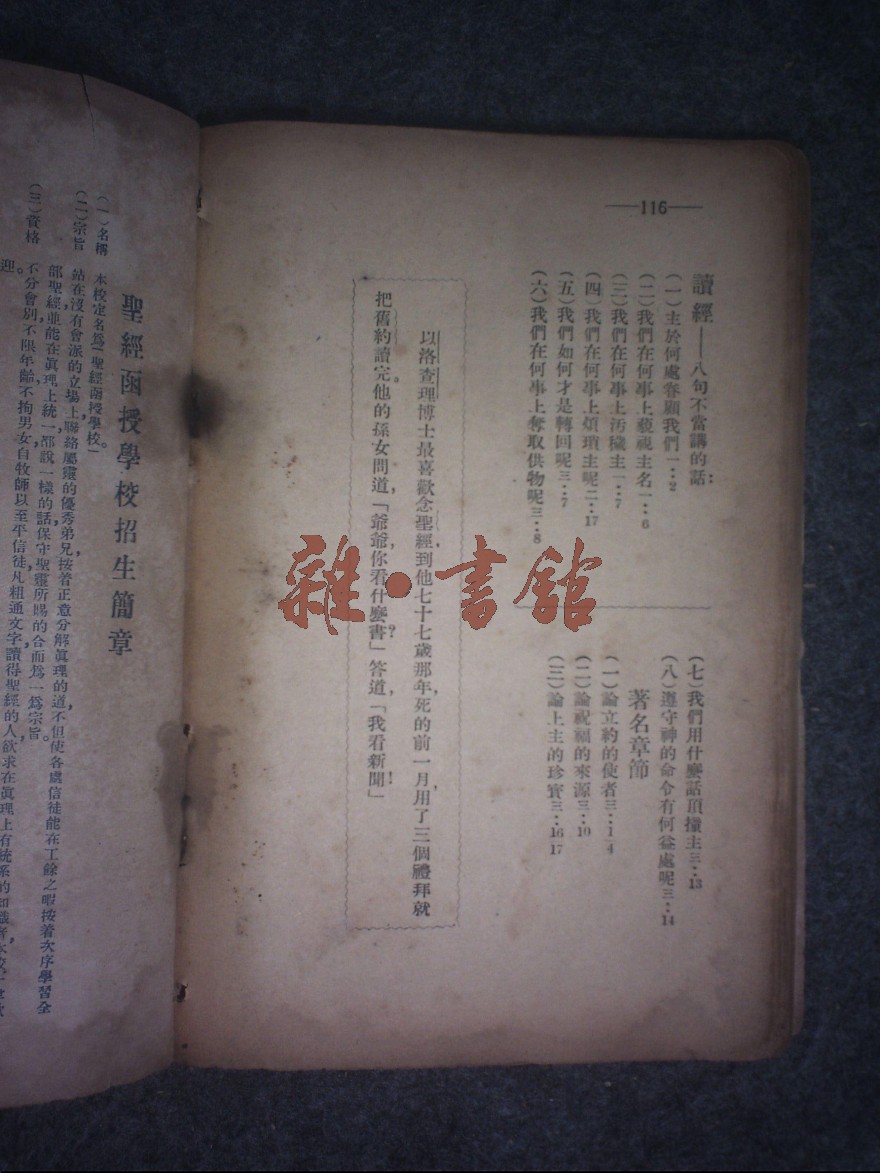 —116—
讀經——八句不當講的話：
（一）主於何處眷顧我們一：2
（二）我們在何事上藐視主名一：6
（三）我們在何事上污穢主一：7
（四）我們在何事上煩瑣主呢二：17
（五）我們如何才是轉回呢三：7
（六）我們在何事上奪取供物呢三：8
（七）我們用什麼話頂撞主三：13
（八）遵守神的命令有何益處呢三：14
著名章節
（一）論立約的使者三：1 4
（二）論祝福的來源三：10
（三）論上主的珍寶三：16 17
以洛查理博士最喜歡念聖經，到他七十七歲那年，死的前一月，用了三個禮拜就
把舊約讀完。他的孫女問道，「爺爺，你看什麼書？」答道，「我看新聞！」
雜·書館
聖經函授學校招生簡章
（一）名稱 本校定名爲「聖經函授學校」。
（二）宗旨 站在沒有會派的立場上，聯絡屬靈的優秀弟兄，按着正意分解眞理的道，不但使各處信徒能在工餘之暇，按着次序學習全
部聖經，並能在眞理上統一，都說一樣的話，保守聖靈所賜的合而爲一爲宗旨。
（三）資格 不分會別，不限年齡，不拘男女，自牧師以至平信徒，凡粗通文字，讀得聖經的人，欲求在眞理上有統系的知識者，本校
迎。